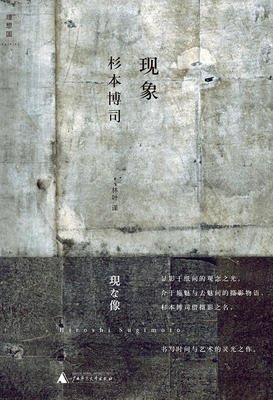 理想国
现象
杉本博司
林叶 译
現な像
显影于纸间的观念之光,
介于施魅与去魅间的摄影物语,
杉本博司借摄影之名,
Hiroshi Sugimoto
书写时间与艺术的灵光之作。
广西师范大学出版社